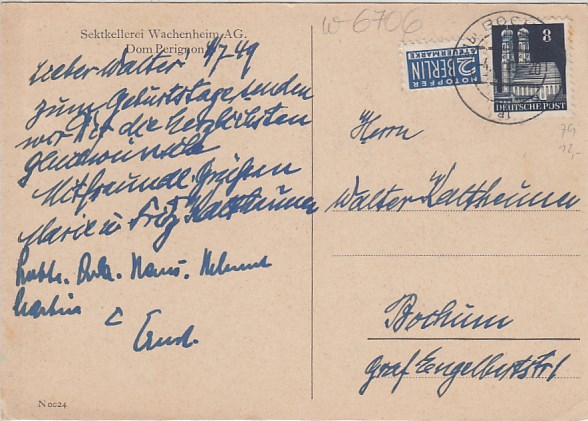 Sektkellerei Wachenheim AG.
Dom Perignon
Lieber Walter! 4/7 49
zum Geburtstage senden
wir Dir die herzlichsten
Glückwünsche
Mit freundl. Grüßen
Marie u Fritz Kaltheuner
Hans. Helmut
Martina
N 0024
w 6706
NOTOPFER
2 BERLIN
STEUERMARKE
BOCHUM
8
DEUTSCHE POST
79
12,-
Herrn
Walter Kaltheuner
Bochum
Graf Engelbertstr 1